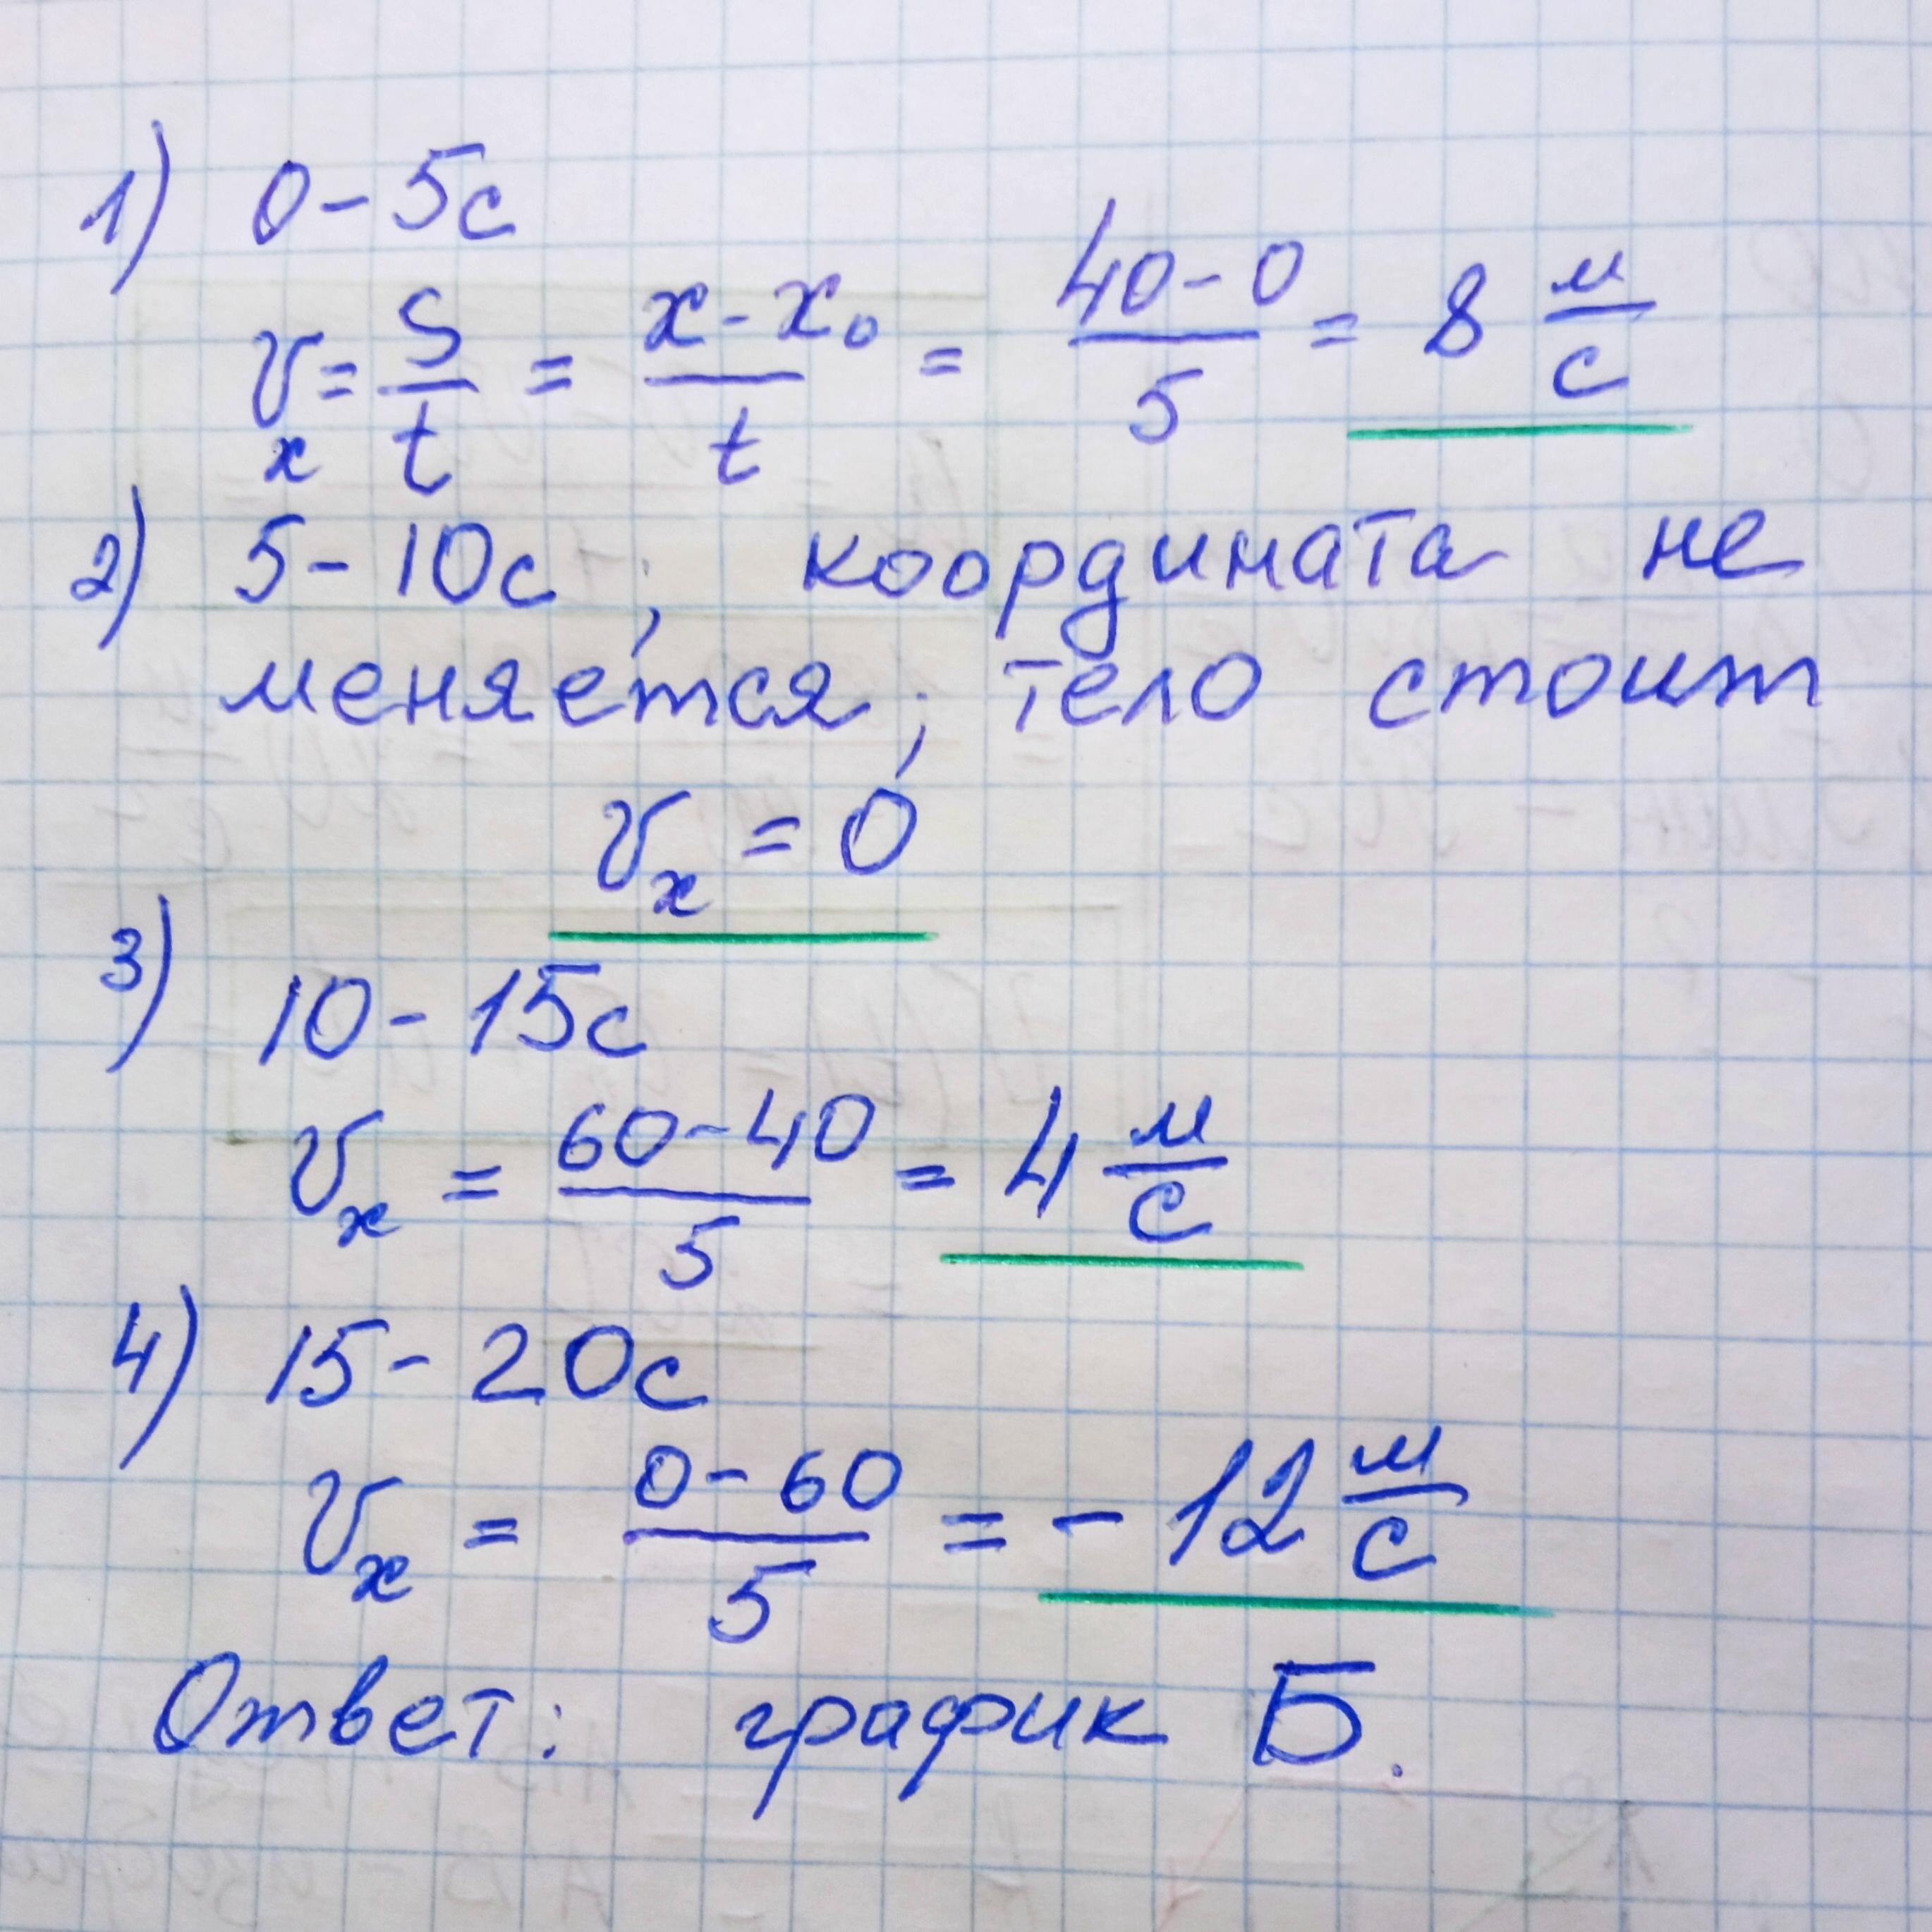 1) 0 - 5с
vₓ = S/t = (x - x₀)/t = (40 - 0)/5 = 8 м/с
2) 5 - 10с, координата не
меняется, тело стоит
vₓ = 0
3) 10 - 15с
vₓ = (60 - 40)/5 = 4 м/с
4) 15 - 20с
vₓ = (0 - 60)/5 = - 12 м/с
Ответ: график Б.